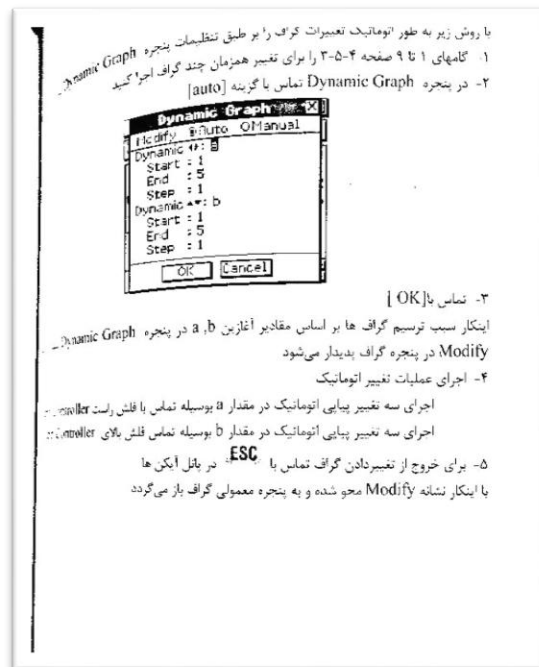 با روش زیر به طور اتوماتیک تغییرات گراف را بر طبق تنظیمات پنجره Dynamic Graph
۱. گامهای ۱ تا ۹ صفحه ۴-۵-۳ را برای تغییر همزمان چند گراف اجرا کنید
۲- در پنجره Dynamic Graph تماس با گزینه [auto]
Dynamic Graph
Modify Auto Manual
Dynamic : a
Start : 1
End : 5
Step : 1
Dynamic : b
Start : 1
End : 5
Step : 1
OK Cancel
۳- تماس با[OK ]
اینکار سبب ترسیم گراف ها بر اساس مقادیر آغازین a, b در پنجره Dynamic Graph
Modify در پنجره گراف پدیدار می‌شود
۴- اجرای عملیات تغییر اتوماتیک
اجرای سه تغییر پیاپی اتوماتیک در مقدار a بوسیله تماس با فلش راست Controller
اجرای سه تغییر پیاپی اتوماتیک در مقدار b بوسیله تماس فلش بالای Controller
۵- برای خروج از تغییردادن گراف تماس با ESC در پانل آیکن ها
با اینکار نشانه Modify محو شده و به پنجره معمولی گراف باز می‌گردد